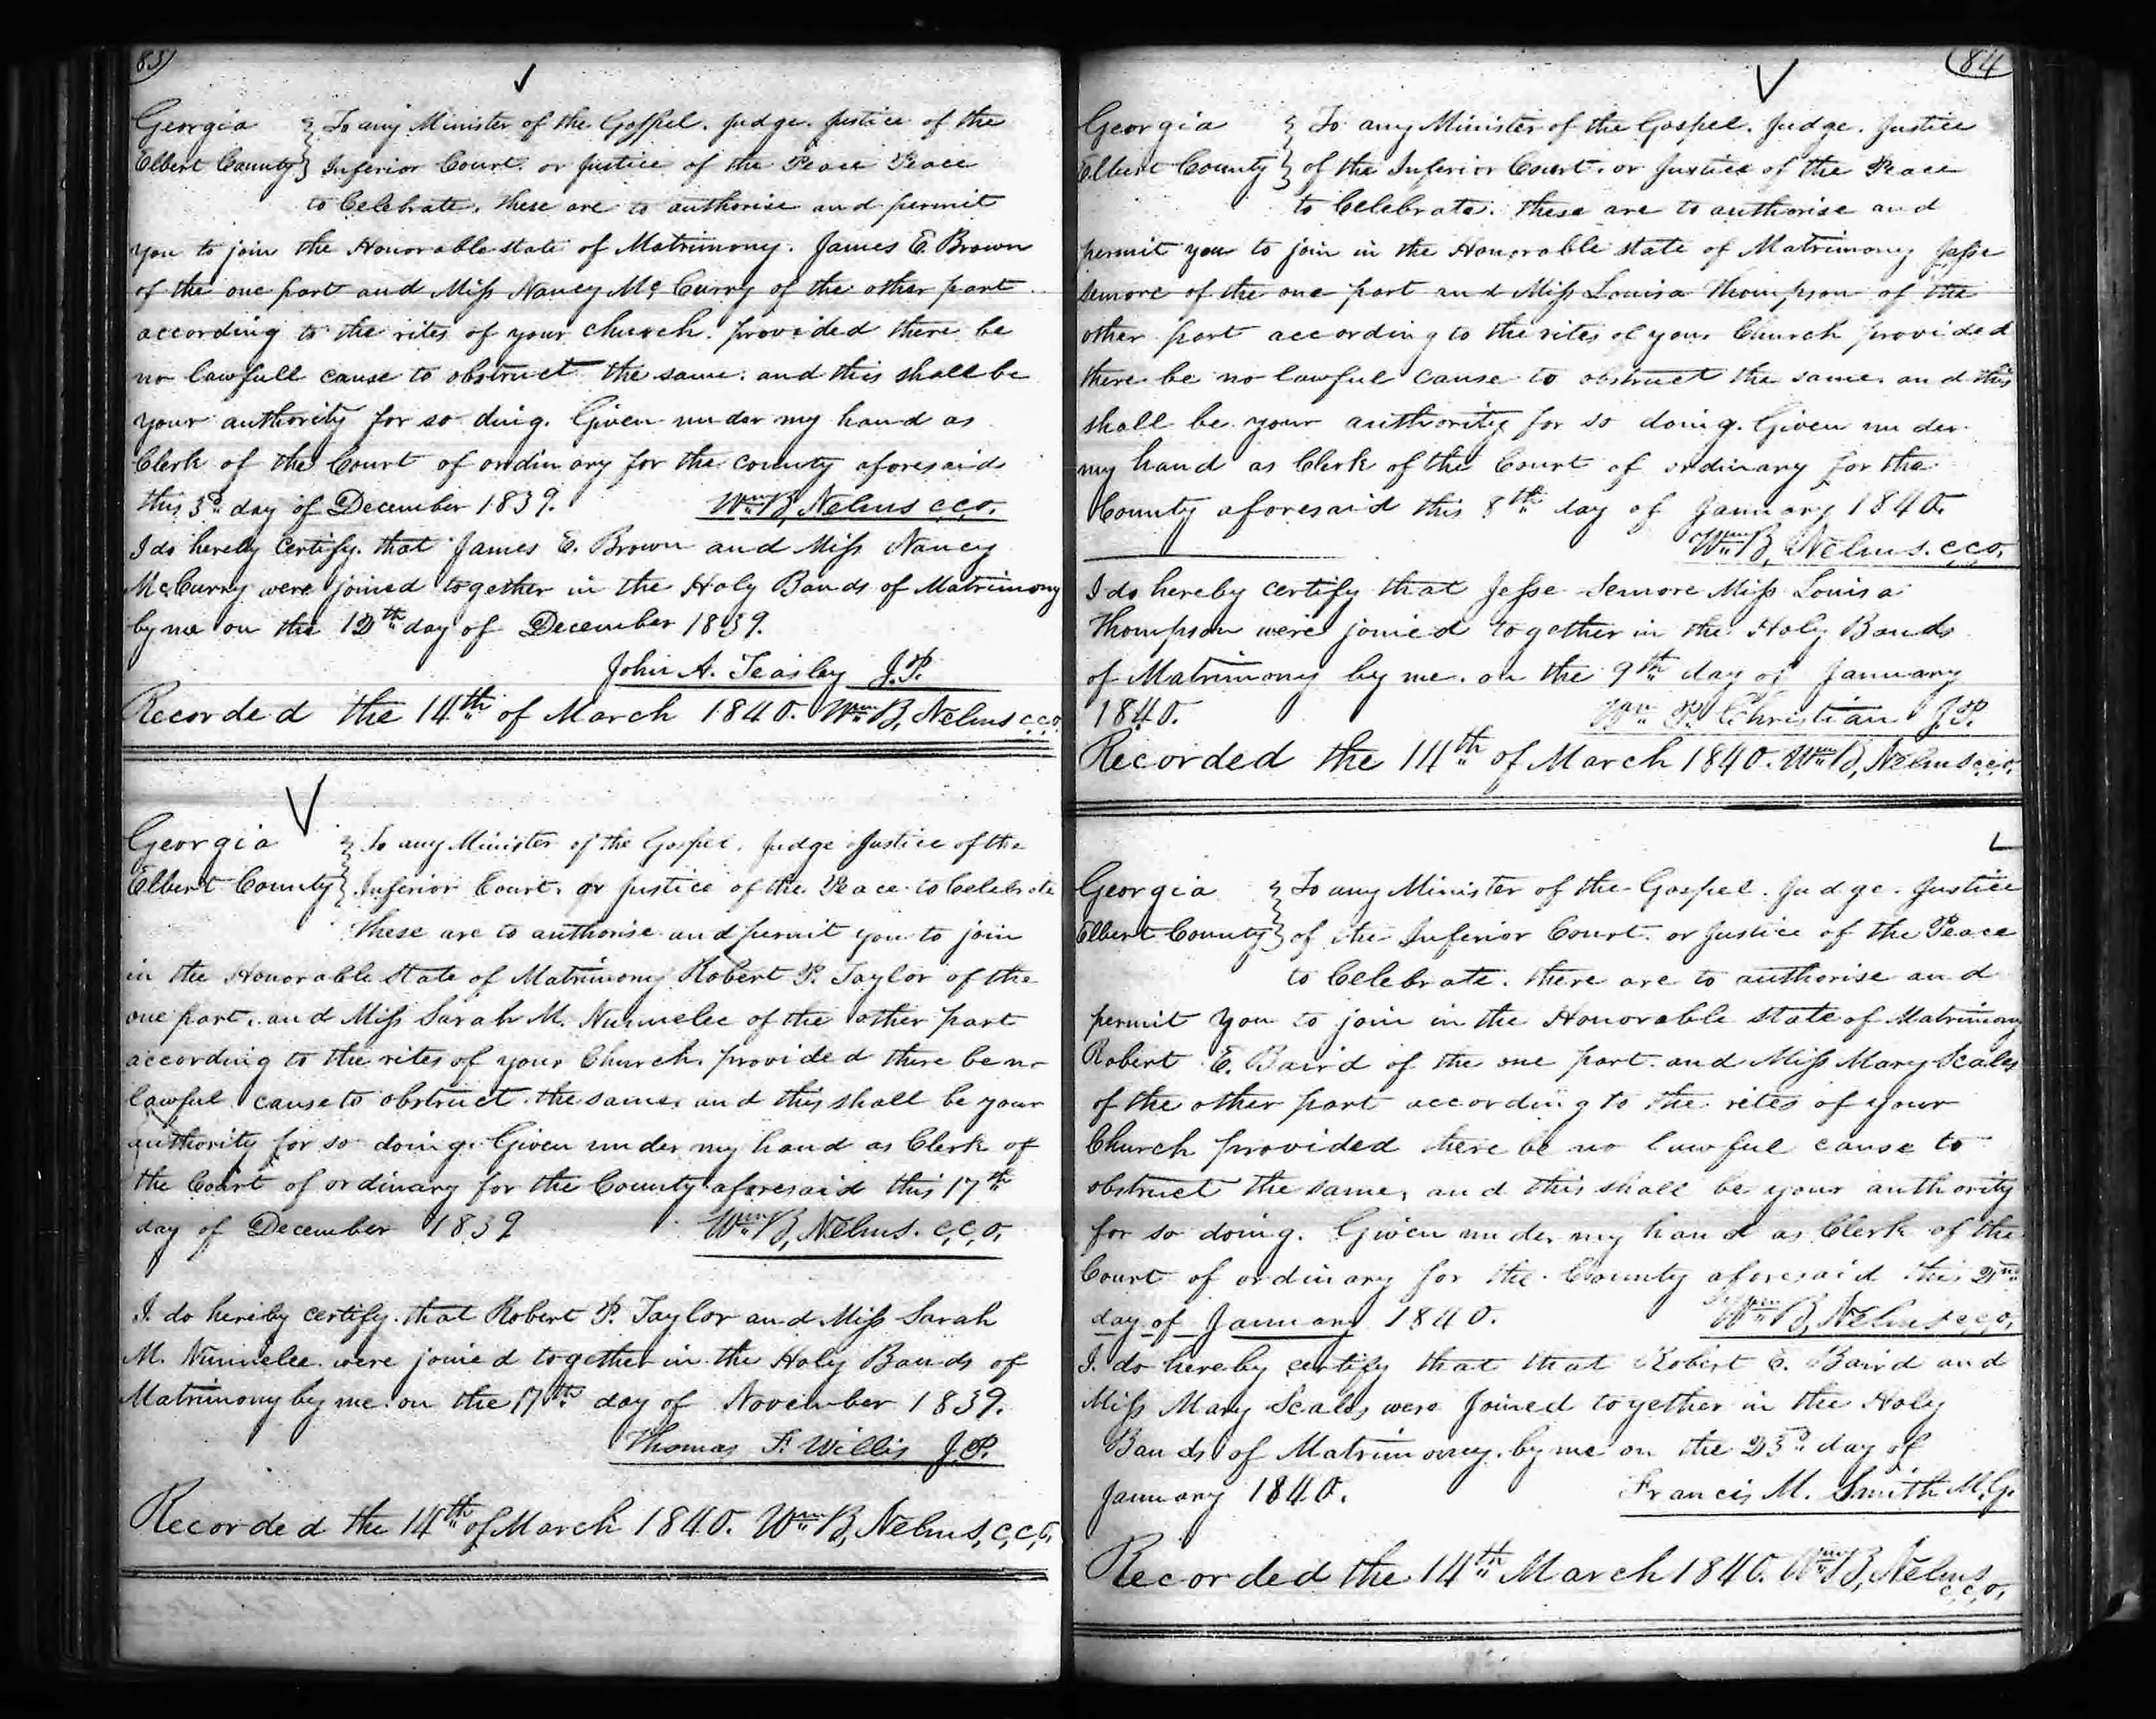 83
Georgia } To any Minister of the Gospel. Judge. Justice of the
Elbert County } Inferior Court. or Justice of the Peace Peace
to Celebrate. these are to authorise and permit
you to join the Honorable state of Matrimony. James E. Brown
of the one part and Miss Nancy Mc Curry of the other part
according to the rites of your church. provided there be
no lawfull cause to obstruct the same. and this shall be
your authority for so ding. Given under my hand as
Clerk of the Court of ordinary for the county aforesaid
this 3d day of December 1839. Wm B, Nelms c.c.o.
I do hereby certify. that James E. Brown and Miss Nancy
McCurry were joined together in the Holy Bands of Matrimony
by me on the 12th day of December 1839.
John A. Teasley J.P.
Recorded the 14th of March 1840. Wm B, Nelms c.c.o.
Georgia } To any Minister of the Gospel. Judge Justice of the
Elbert County } Inferior Court. or Justice of the Peace to Celebrate
these are to authorise and permit you to join
in the Honorable state of Matrimony Robert P. Taylor of the
one part. and Miss Sarah M. Nunnelee of the other part
according to the rites of your Church. provided there be no
lawful cause to obstruct the same. and this shall be your
authority for so doing. Given under my hand as Clerk of
the Court of ordinary for the County aforesaid this 17th
day of December 1839 Wm B, Nelms. c,c,o,
I do hereby certify. that Robert P. Taylor and Miss Sarah
M. Nunnelee were joined together in the Holy Bands of
Matrimony by me on the 17th day of November 1839.
Thomas F. Willis J.P.
Recorded the 14th of March 1840. Wm B, Nelms, c,c,o,
84
Georgia } To any Minister of the Gospel. Judge. Justice
Elbert County } of the Inferior Court. or Justice of the Peace
to Celebrate. these are to authorise and
permit you to join in the Honorable state of Matrimony Jesse
Semore of the one part and Miss Louisa Thompson of the
other part according to the rites of your Church provided
there be no lawful cause to obstruct the same. and this
shall be your authority for so doing. Given under
my hand as Clerk of the Court of ordinary for the
County aforesaid this 8th day of January 1840.
Wm B, Nelms. c,c,o,
I do hereby certify that Jesse Semore Miss Louisa
Thompson were joined together in the Holy Bands
of Matrimony by me. on the 9th day of January
1840. Wm P. Christian J.P.
Recorded the 14th of March 1840. Wm B, Nelms c.c.o.
Georgia } To any Minister of the Gospel. Judge. Justice
Elbert County } of the Inferior Court. or Justice of the Peace
to Celebrate. there are to authorise and
permit you to join in the Honorable state of Matrimony
Robert E. Baird of the one part. and Miss Mary Scales
of the other part according to the rites of your
Church provided there be no lawful cause to
obstruct the same, and this shall be your authority
for so doing. Given under my hand as Clerk of the
Court of ordinary for the County aforesaid this 2nd
day of January 1840. Wm B, Nelms c,c,o,
I. do hereby certify that that Robert E. Baird and
Miss Mary Scales were Joined together in the Holy
Bands of Matrimony. by me on the 23d day of
January 1840. Francis M. Smith M.G.
Recorded the 14th March 1840. Wm B, Nelms
c,c,o,